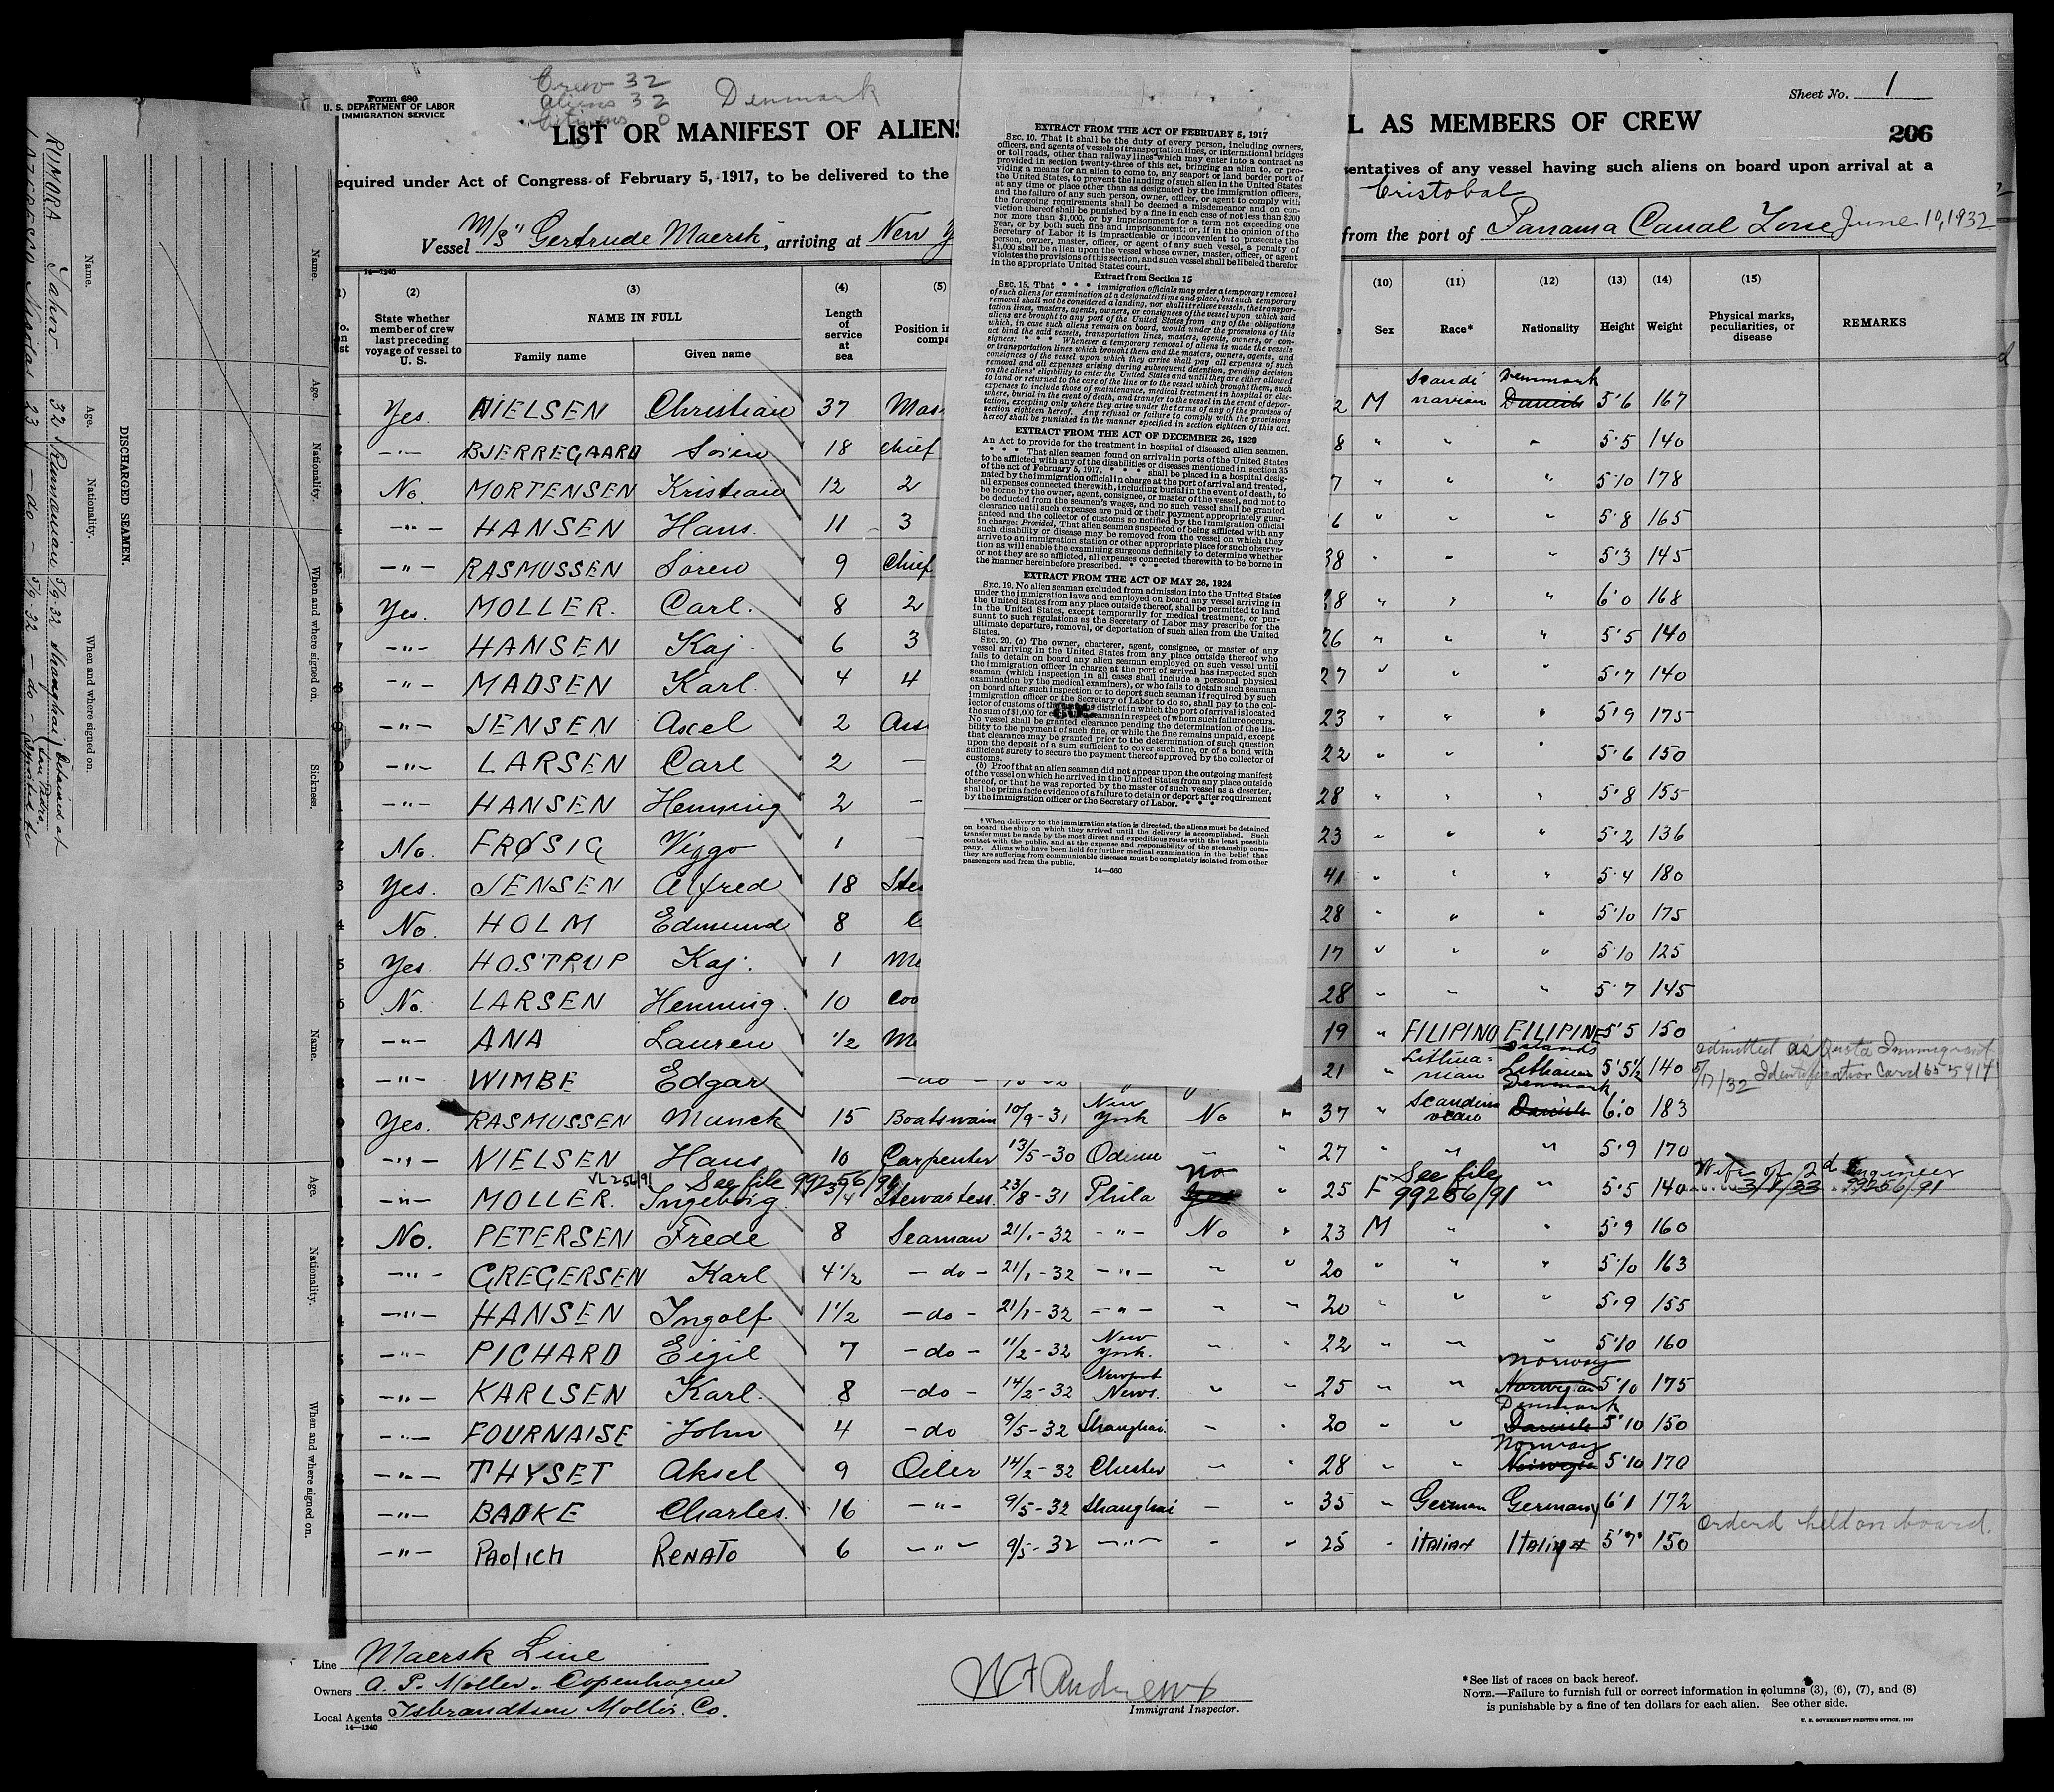 Form 680
U. S. DEPARTMENT OF LABOR
IMMIGRATION SERVICE
Crew 32
Aliens 32
Citizens 0
Denmark
Sheet No. 1
LIST OR MANIFEST OF ALIENS
L AS MEMBERS OF CREW
206
equired under Act of Congress of February 5, 1917, to be delivered to the
sentatives of any vessel having such aliens on board upon arrival at a
Cristobal
Vessel M/S "Gertrude Maersk, arriving at New Y
from the port of Panama Canal Zone June 10, 1932
14—1240
(2) (3) (4) (5) (10) (11) (12) (13) (14) (15)
State whether member of crew last preceding voyage of vessel to U. S.
NAME IN FULL
Family name Given name
Length of service at sea
Position i compa
Sex Race* Nationality Height Weight
Physical marks, peculiarities, or disease
REMARKS
Yes. NIELSEN Christian 37 Mas 2 M Scandinavian Denmark Danish 5'6 167
-"- BJERREGAARD Sören 18 Chief 8 " " " 5'5 140
No. MORTENSEN Kristian 12 2 7 " " " 5'10 178
-"- HANSEN Hans. 11 3 6 " " " 5'8 165
-"- RASMUSSEN Sören 9 Chief 38 " " " 5'3 145
Yes. MOLLER. Carl. 8 2 28 " " " 6'0 168
-"- HANSEN Kaj. 6 3 26 " " " 5'5 140
-"- MADSEN Karl. 4 4 27 " " " 5'7 140
-"- JENSEN Axel 2 Ass 23 " " " 5'9 175
-"- LARSEN Carl 2 — 22 " " " 5'6 150
-"- HANSEN Henning 2 — 28 " " " 5'8 155
No. FRØSIG Viggo 1 — 23 " " " 5'2 136
Yes. JENSEN Alfred 18 Ste 41 " " " 5'4 180
No. HOLM Edmund 8 C 28 " " " 5'10 175
Yes. HOSTRUP Kaj. 1 Me 17 " " " 5'10 125
No. LARSEN Henning. 10 Coo 28 " " " 5'7 145
-"- ANA Lauren 1/2 M 19 " FILIPINO FILIPINE Islands 5'5 150
-"- WIMBE Edgar -do- 21 " Lithuanian Lithauen 5'5½ 140 admitted as Quota Immigrant
5/17/32 Identification Card 655917
Yes. RASMUSSEN Munck 15 Boatswain 10/9-31 New York No " 37 " Scandinavian Denmark Danish 6'0 183
-"- NIELSEN Hans 10 Carpenter 13/5-30 Odense " " 27 " " " 5'9 170
VL 256/91 See file 99256/91 See file Wife of 2d Engineer
-"- MOLLER. Ingeborg. 3/4 Stewardess. 23/8-31 Phila No Yes " 25 F 99256/91 " 5'5 140 3/8/33 99256/91
No. PETERSEN Frede 8 Seaman 21/1-32 -"- No " 23 M " " 5'9 160
-"- GREGERSEN Karl 4½ -do- 21/1-32 -"- " " 20 " " " 5'10 163
-"- HANSEN Ingolf 1½ -do- 21/1-32 -"- " " 20 " " " 5'9 155
-"- PICHARD Eigil 7 -do- 11/2-32 New York. " " 22 " " " 5'10 160
-"- KARLSEN Karl. 8 -do- 14/2-32 Newport News. " " 25 " " Norway Norwegian 5'10 175
-"- FOURNAISE John 4 -do 9/5-32 Shanghai. " " 20 " " Denmark Danish 5'10 150
-"- THYSET Aksel 9 Oiler 14/2-32 Chester " " 28 " " Norway Norwegian 5'10 170
-"- BADKE Charles. 16 -"- 9/5-32 Shanghai " " 35 " German Germany 6'1 172
-"- PAOLICH RENATO 6 -"- 9/5-32 -"- " " 25 " ITALIAN ITALY 5'7" 150 Orderd held on board.
Line Maersk Line
Owners A. P. Moller. Copenhague
Local Agents Isbrandtsen Moller. Co.
14—1240
Immigrant Inspector.
*See list of races on back hereof.
NOTE.—Failure to furnish full or correct information in columns (3), (6), (7), and (8)
is punishable by a fine of ten dollars for each alien. See other side.
U. S. GOVERNMENT PRINTING OFFICE.
EXTRACT FROM THE ACT OF FEBRUARY 5, 1917
SEC. 10. That it shall be the duty of every person, including owners,
officers, and agents of vessels of transportation lines, or international bridges
or toll roads, other than railway lines which may enter into a contract as
provided in section twenty-three of this act, bringing an alien to, or pro-
viding a means for an alien to come to, any seaport or land border port of
the United States, to prevent the landing of such alien in the United States
at any time or place other than as designated by the immigration officers,
and the failure of any such person, owner, officer, or agent to comply with
the foregoing requirements shall be deemed a misdemeanor and on con-
viction thereof shall be punished by a fine in each case of not less than $200
nor more than $1,000, or by imprisonment for a term not exceeding one
year, or by both such fine and imprisonment; or, if in the opinion of the
Secretary of Labor it is impracticable or inconvenient to prosecute the
person, owner, master, officer, or agent of any such vessel, a penalty of
$1,000 shall be a lien upon the vessel whose owner, master, officer, or agent
violates the provisions of this section, and such vessel shall be libeled therefor
in the appropriate United States court.
Extract from Section 15
SEC. 15. That * * * immigration officials may order a temporary removal
of such aliens for examination at a designated time and place, but such temporary
removal shall not be considered a landing, nor shall it relieve vessels, the transpor-
tation lines, masters, agents, owners, or consignees of the vessel upon which said
aliens are brought to any port of the United States from any of the obligations
which, in case such aliens remain on board, would under the provisions of this
act bind the said vessels, transportation lines, masters, agents, owners, or con-
signees: * * * Whenever a temporary removal of aliens is made the vessels
or transportation lines which brought them and the masters, owners, agents, and
consignees of the vessel upon which they arrive shall pay all expenses of such
removal and all expenses arising during subsequent detention, pending decision
on the aliens' eligibility to enter the United States and until they are either allowed
to land or returned to the care of the line or to the vessel which brought them, such
expenses to include those of maintenance, medical treatment in hospital or else-
where, burial in the event of death, and transfer to the vessel in the event of depor-
tation, excepting only where they arise under the terms of any of the provisos of
section eighteen hereof. Any refusal or failure to comply with the provisions
hereof shall be punished in the manner specified in section eighteen of this act.
EXTRACT FROM THE ACT OF DECEMBER 26, 1920
An Act to provide for the treatment in hospital of diseased alien seamen.
* * * That alien seamen found on arrival in ports of the United States
to be afflicted with any of the disabilities or diseases mentioned in section 35
of the act of February 5, 1917, * * * shall be placed in a hospital desig-
nated by the immigration official in charge at the port of arrival and treated,
all expenses connected therewith, including burial in the event of death, to
be borne by the owner, agent, consignee, or master of the vessel, and not to
be deducted from the seamen's wages, and no such vessel shall be granted
clearance until such expenses are paid or their payment appropriately guar-
anteed and the collector of customs so notified by the immigration official
in charge: Provided, That alien seamen suspected of being afflicted with any
such disability or disease may be removed from the vessel on which they
arrive to an immigration station or other appropriate place for such observa-
tion as will enable the examining surgeons definitely to determine whether
or not they are so afflicted, all expenses connected therewith to be borne in
the manner hereinbefore prescribed. * * *
EXTRACT FROM THE ACT OF MAY 26, 1924
SEC. 19. No alien seaman excluded from admission into the United States
under the immigration laws and employed on board any vessel arriving in
the United States from any place outside thereof, shall be permitted to land
in the United States, except temporarily for medical treatment, or pur-
suant to such regulations as the Secretary of Labor may prescribe for the
ultimate departure, removal, or deportation of such alien from the United
States.
SEC. 20. (a) The owner, charterer, agent, consignee, or master of any
vessel arriving in the United States from any place outside thereof who
fails to detain on board any alien seaman employed on such vessel until
the immigration officer in charge at the port of arrival has inspected such
seaman (which inspection in all cases shall include a personal physical
examination by the medical examiners), or who fails to detain such seaman
on board after such inspection or to deport such seaman if required by such
immigration officer or the Secretary of Labor to do so, shall pay to the col-
lector of customs of the district in which the port of arrival is located
the sum of $1,000 for each seaman in respect of whom such failure occurs.
No vessel shall be granted clearance pending the determination of the lia-
bility to the payment of such fine, or while the fine remains unpaid, except
that clearance may be granted prior to the determination of such question
upon the deposit of a sum sufficient to cover such fine, or of a bond with
sufficient surety to secure the payment thereof approved by the collector of
customs.
(b) Proof that an alien seaman did not appear upon the outgoing manifest
of the vessel on which he arrived in the United States from any place outside
thereof, or that he was reported by the master of such vessel as a deserter,
shall be prima facie evidence of a failure to detain or deport after requirement
by the immigration officer or the Secretary of Labor. * * *
† When delivery to the immigration station is directed, the aliens must be detained
on board the ship on which they arrived until the delivery is accomplished. Such
transfer must be made by the most direct and expeditious route with the least possible
contact with the public, and at the expense and responsibility of the steamship com-
pany. Aliens who have been held for further medical examination in the belief that
they are suffering from communicable diseases must be completely isolated from other
passengers and from the public.
14—660
DISCHARGED SEAMEN.
Name. Age. Nationality. When and where signed on.
RUMORA Jakov 32 Rumanian 5/9-32 Shanghai Detained at
23 -do- 5/9-32 -do- San Pedro.
Name. Age. Nationality. When and where signed on. Sickness.
Name. Age. Nationality. When and where signed on.